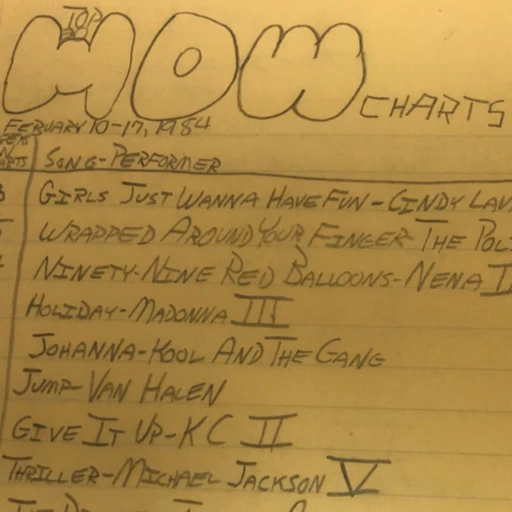 TOP
HOW CHARTS
FEBUARY 10-17, 1984
SONG-PERFORMER
GIRLS JUST WANNA HAVE FUN-CINDY LAU
WRAPPED AROUND YOUR FINGER-THE POLI
NINETY-NINE RED BALLOONS-NENA I
HOLIDAY-MADONNA III
JOHANNA-KOOL AND THE GANG
JUMP-VAN HALEN
GIVE IT UP-KC II
THRILLER-MICHAEL JACKSON V